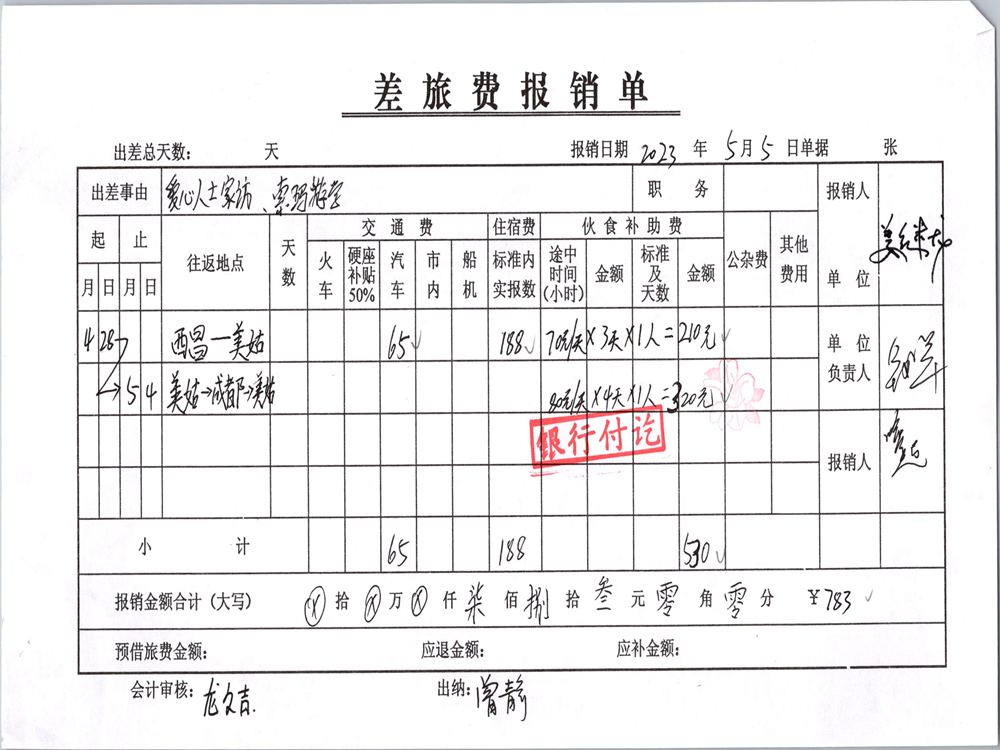 差旅费报销单
出差总天数： 天 报销日期 2023 年 5月5 日单据 张
出差事由 爱心人士家访、索玛 职 务 报销人
起 止 往返地点 天数 交通费 住宿费 伙食补助费 公杂费 其他费用 单 位
月 日 月 日 火车 硬座补贴50% 汽车 市内 船机 标准内实报数 途中时间(小时) 金额 标准及天数 金额
4 28 西昌—美姑 65 188 70元/天×3天×1人=210元 单 位 负责人
5 4 美姑→成都→美姑 80元/天×4天×1人=320元
银行付讫
报销人
小 计 65 188 530
报销金额合计（大写） ⊗ 拾 ⊗ 万 ⊗ 仟 柒 佰 捌 拾 叁 元 零 角 零 分 ￥783
预借旅费金额： 应退金额： 应补金额：
会计审核：龙文吉 出纳：曾静